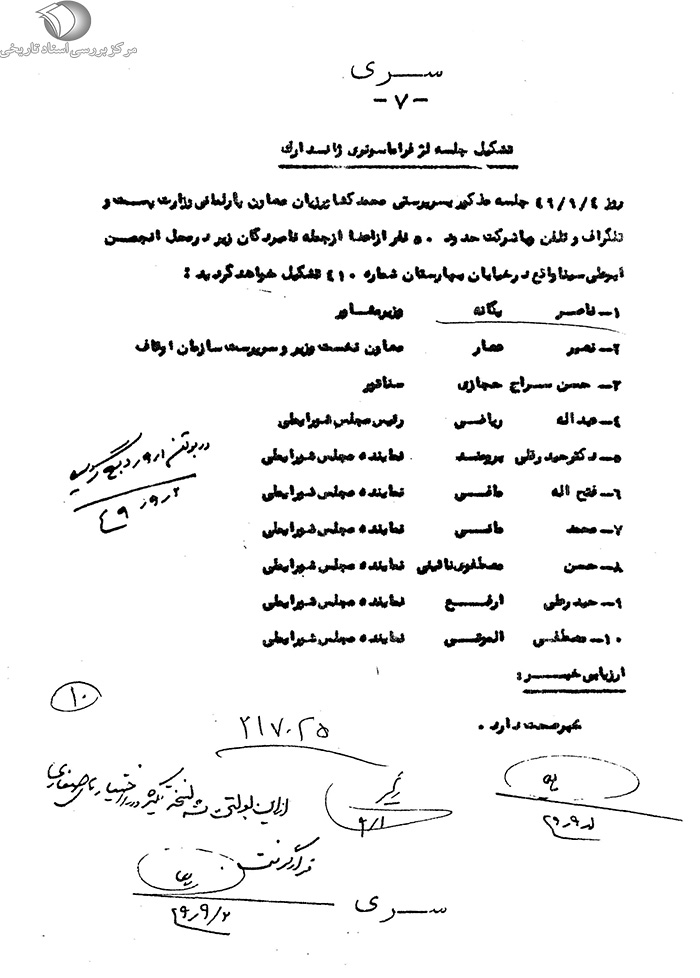 مرکز بررسی اسناد تاریخی
سری
-۷-
تشکیل جلسه لژ فراماسونری ژاندارک
روز ۴۹/۹/۴ جلسه مذکور بسرپرستی محمد کشاورزیان معاون پارلمانی وزارت پست و
تلگراف و تلفن و باشرکت حدود ۵۰ نفر از اعضا از جمله نامبردگان زیر در محل انجمن
ابوعلی سینا واقع در خیابان بهارستان شماره ۴۱۰ تشکیل خواهد گردید :
۱- ناصر یگانه وزیر مشاور
۲- نصیر عصار معاون نخست وزیر و سرپرست سازمان اوقاف
۳- حسن سراج حجازی سناتور
۴- عبداله ریاضی رئیس مجلس شورایملی
۵- دکتر حیدرقلی برومند نماینده مجلس شورایملی
۶- فتح اله مافی نماینده مجلس شورایملی
۷- محمد مافی نماینده مجلس شورایملی
۸- حسن مصطفوی نائینی نماینده مجلس شورایملی
۹- حیدرعلی ارفع نماینده مجلس شورایملی
۱۰- مصطفی الموتی نماینده مجلس شورایملی
ارزیابی خبر :
خبر صحت دارد .
در بولتن
۱۰
۲۱۷۰۲۵
۹/۱
از این بولتن نسخه دیگری در اختیار
قرار گرفت
۴۹/۹/۲
سری